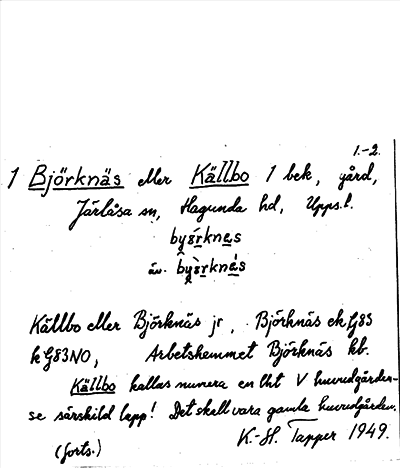 1.-2.
1 Björknäs eller Källbo 1 bek, gård,
Järlåsa sn, Hagunda hd, Upps. l.
Källbo eller Björknäs jr, Björknäs ek G83
k G83NO, Arbetshemmet Björknäs kb.
Källbo kallas numera en lht V huvudgården-
se särskild lapp! Det skall vara gamla huvudgården.
(forts.) K.-H. Tapper 1949.